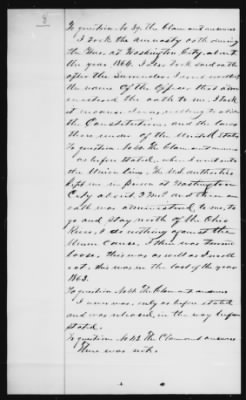 8
To question No 39. the Claimant answers
I took the amnesty oath during
the War, at Washington City, about
the year 1864. I also took said oath
after the Surrender. I cannot
the name of the officer that
the oath to me. I took
it
the Constitution, and the laws
thereunder of the United States
To question No 40. The Claimant answers
as before stated, when I went into
the Union lines. The Fed. authorities
kept me in prison at Washington
City about 3 and then an
oath was administered, to me, to
go and stay north of the Ohio
River, & do nothing against the
Union cause. I then was turned
loose. this was as well as I recol-
lect. this was in the last of the year
1863.
To question No 41. The Claimant answers
I never was, only as before stated
and was released, in the way before
stated.
To question No 43 The Claimant answers
There was not.